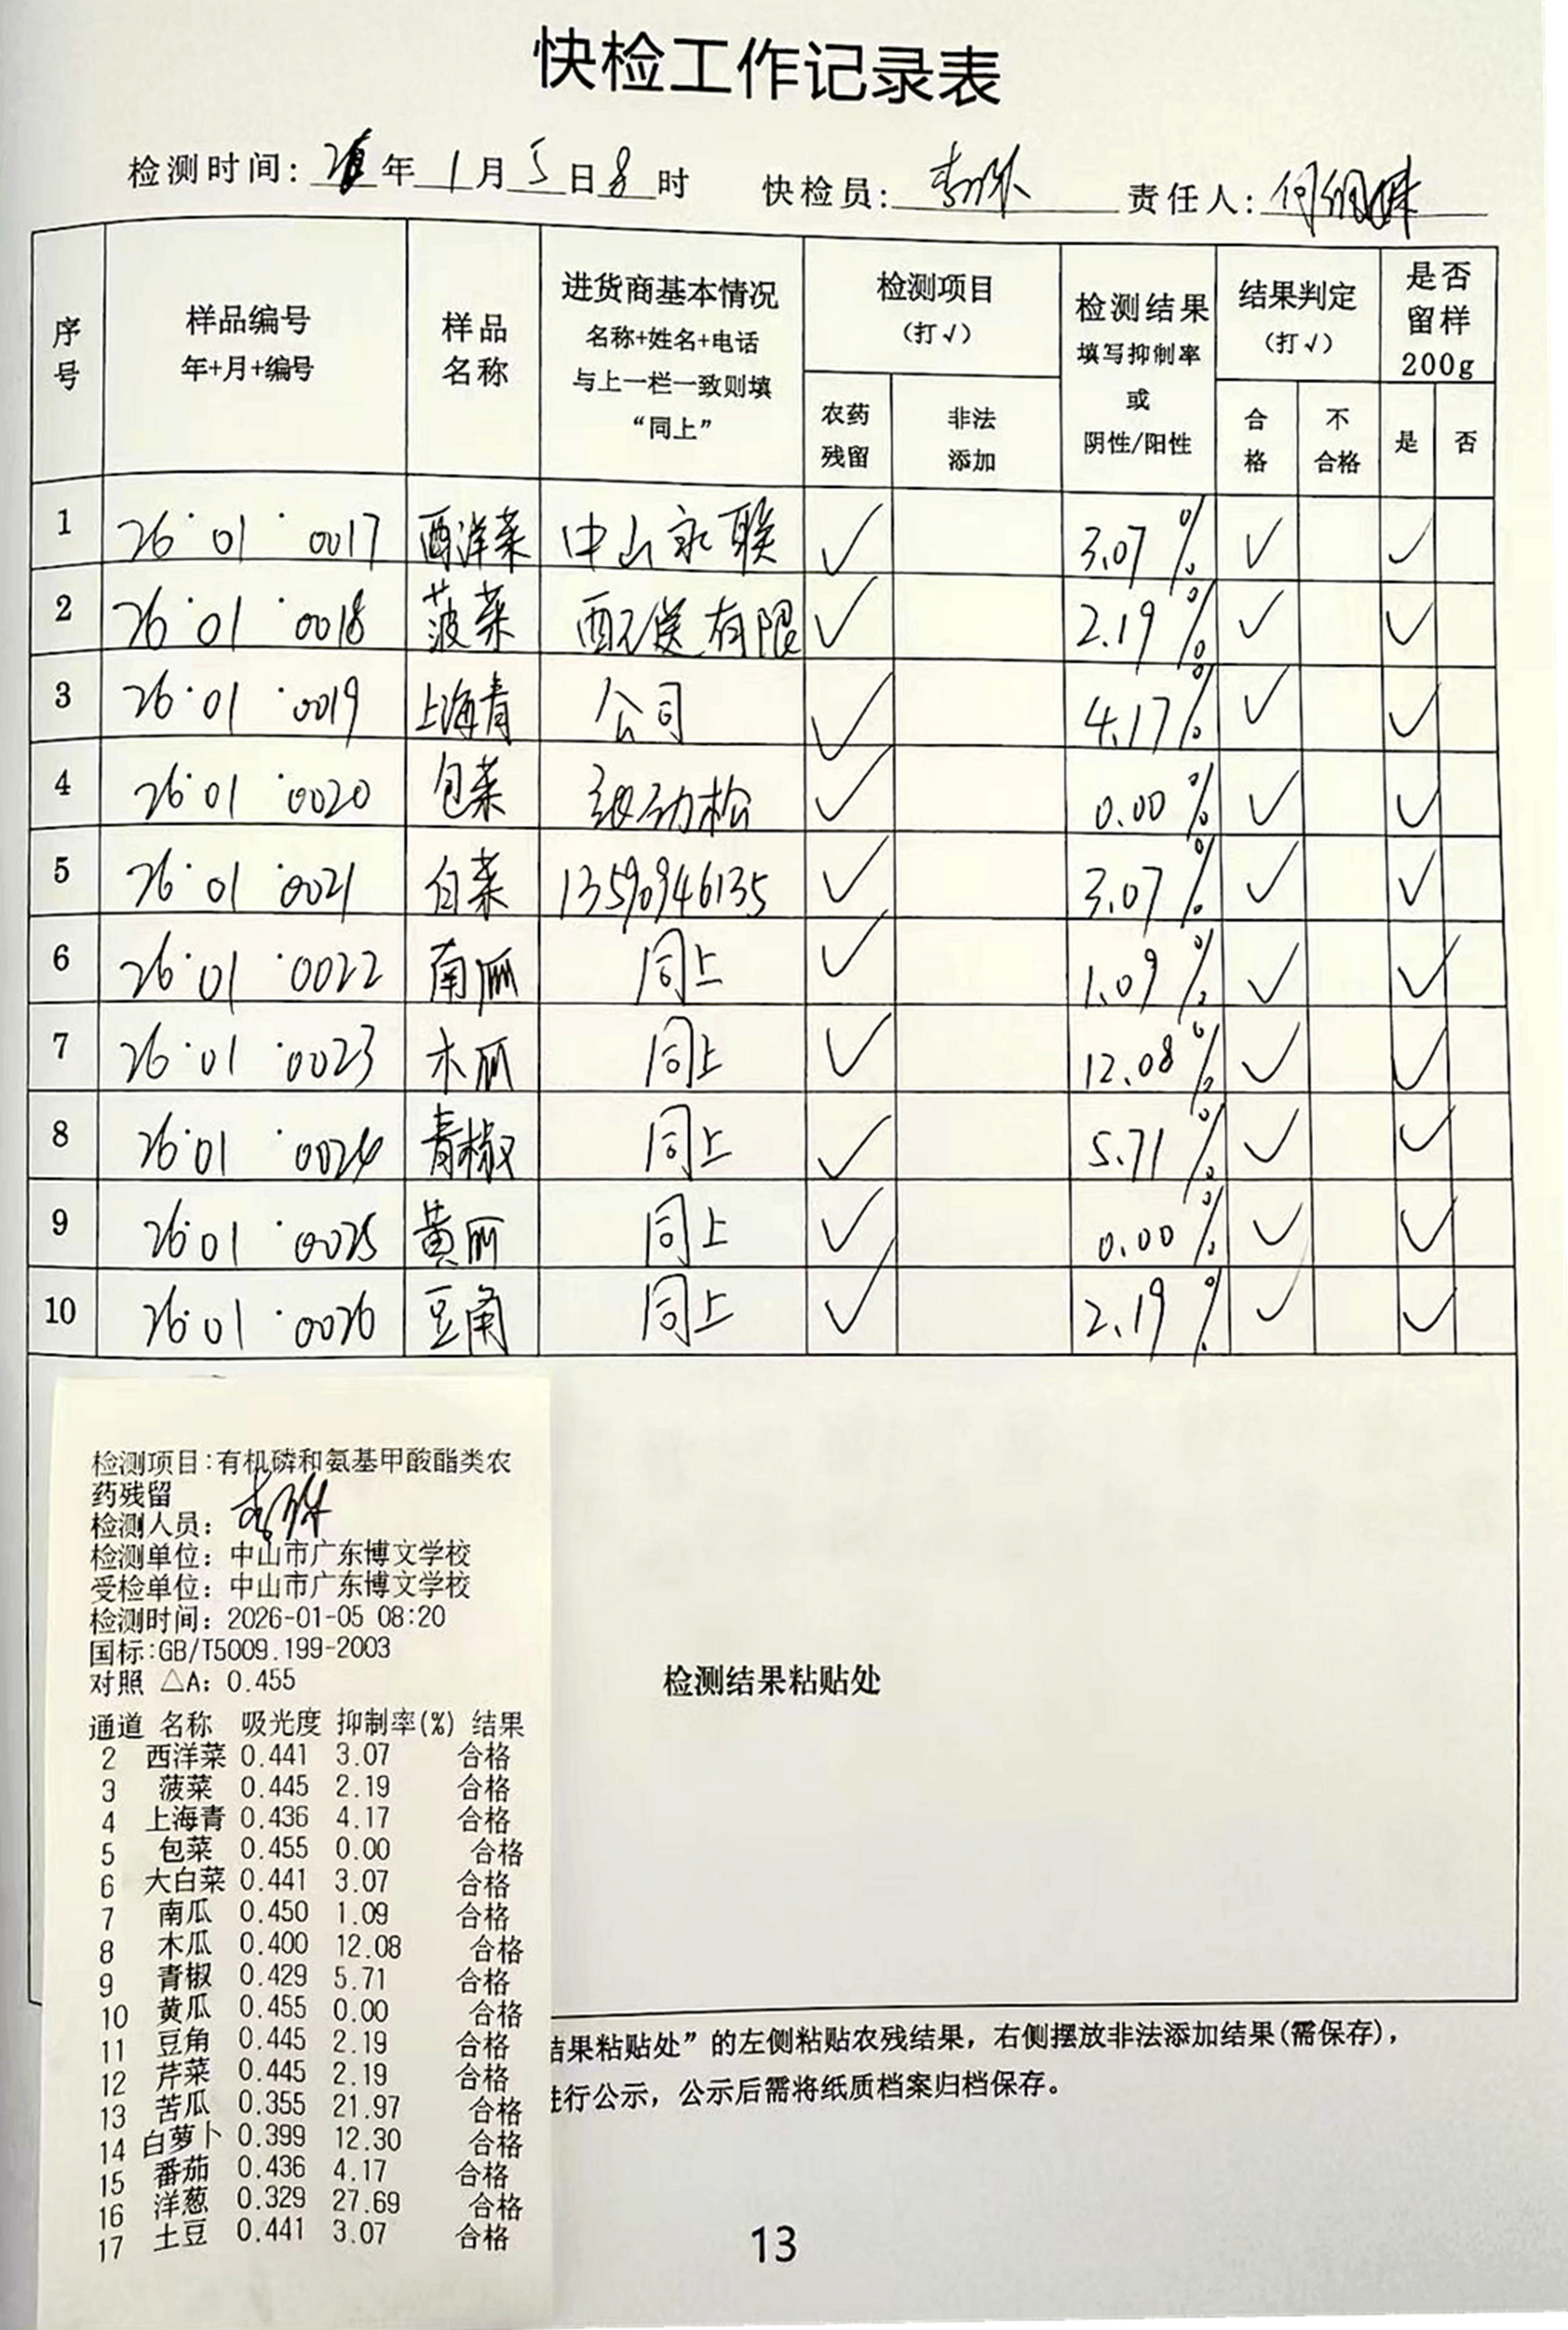 快检工作记录表
检测时间: 26年1月5日8时 快检员: 责任人:
序号 样品编号 年+月+编号 样品名称 进货商基本情况 名称+姓名+电话 与上一栏一致则填“同上” 检测项目(打√) 农药残留 非法添加 检测结果 填写抑制率或阴性/阳性 结果判定(打√) 合格 不合格 是否留样200g 是 否
1 26·01·0017 西洋菜 中山永联 √ 3.07% √ √
2 26·01·0018 菠菜 配送有限 √ 2.19% √ √
3 26·01·0019 上海青 公司 √ 4.17% √ √
4 26·01·0020 包菜 劲松 √ 0.00% √ √
5 26·01·0021 白菜 13590946135 √ 3.07% √ √
6 26·01·0022 南瓜 同上 √ 1.09% √ √
7 26·01·0023 木瓜 同上 √ 12.08% √ √
8 26·01·0024 青椒 同上 √ 5.71% √ √
9 26·01·0025 黄瓜 同上 √ 0.00% √ √
10 26·01·0026 豆角 同上 √ 2.19% √ √
检测项目:有机磷和氨基甲酸酯类农
药残留
检测人员:
检测单位: 中山市广东博文学校
受检单位: 中山市广东博文学校
检测时间: 2026-01-05 08:20
国标:GB/T5009.199-2003
对照 △A: 0.455
通道 名称 吸光度 抑制率(%) 结果
2 西洋菜 0.441 3.07 合格
3 菠菜 0.445 2.19 合格
4 上海青 0.436 4.17 合格
5 包菜 0.455 0.00 合格
6 大白菜 0.441 3.07 合格
7 南瓜 0.450 1.09 合格
8 木瓜 0.400 12.08 合格
9 青椒 0.429 5.71 合格
10 黄瓜 0.455 0.00 合格
11 豆角 0.445 2.19 合格
12 芹菜 0.445 2.19 合格
13 苦瓜 0.355 21.97 合格
14 白萝卜 0.399 12.30 合格
15 番茄 0.436 4.17 合格
16 洋葱 0.329 27.69 合格
17 土豆 0.441 3.07 合格
检测结果粘贴处
结果粘贴处”的左侧粘贴农残结果，右侧摆放非法添加结果(需保存)，
进行公示，公示后需将纸质档案归档保存。
13